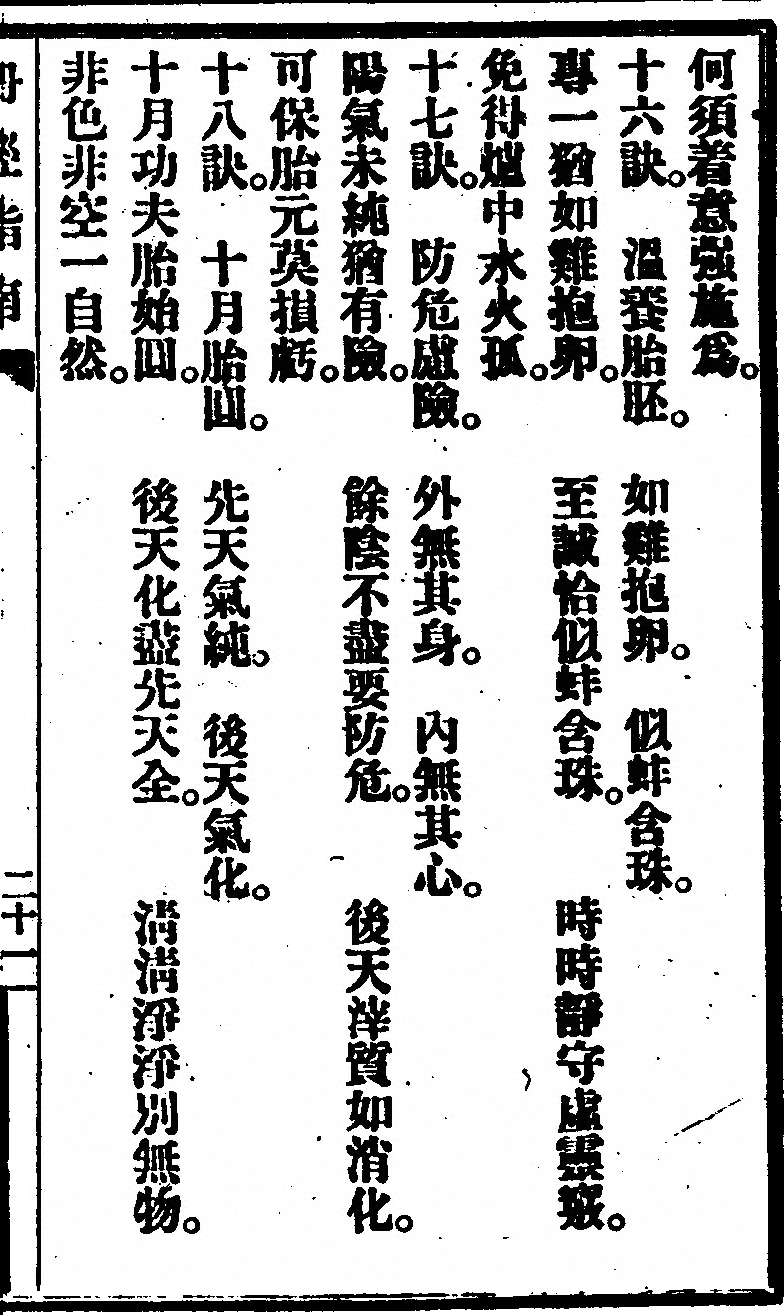 何須着意强施爲。
十六訣。　溫養胎胚。　如雞抱卵。　似蚌含珠。
專一猶如雞抱卵。　至誠恰似蚌含珠。　時時靜守虛靈竅。
免得爐中水火孤。
十七訣。　防危慮險。　外無其身。　內無其心。
陽氣未純猶有險。　餘陰不盡要防危。　後天滓質如消化。
可保胎元莫損虧。
十八訣。　十月胎圓。　先天氣純。　後天氣化。
十月功夫胎始圓。　後天化盡先天全。　清清淨淨別無物。
非色非空一自然。
丹經指南　二十一